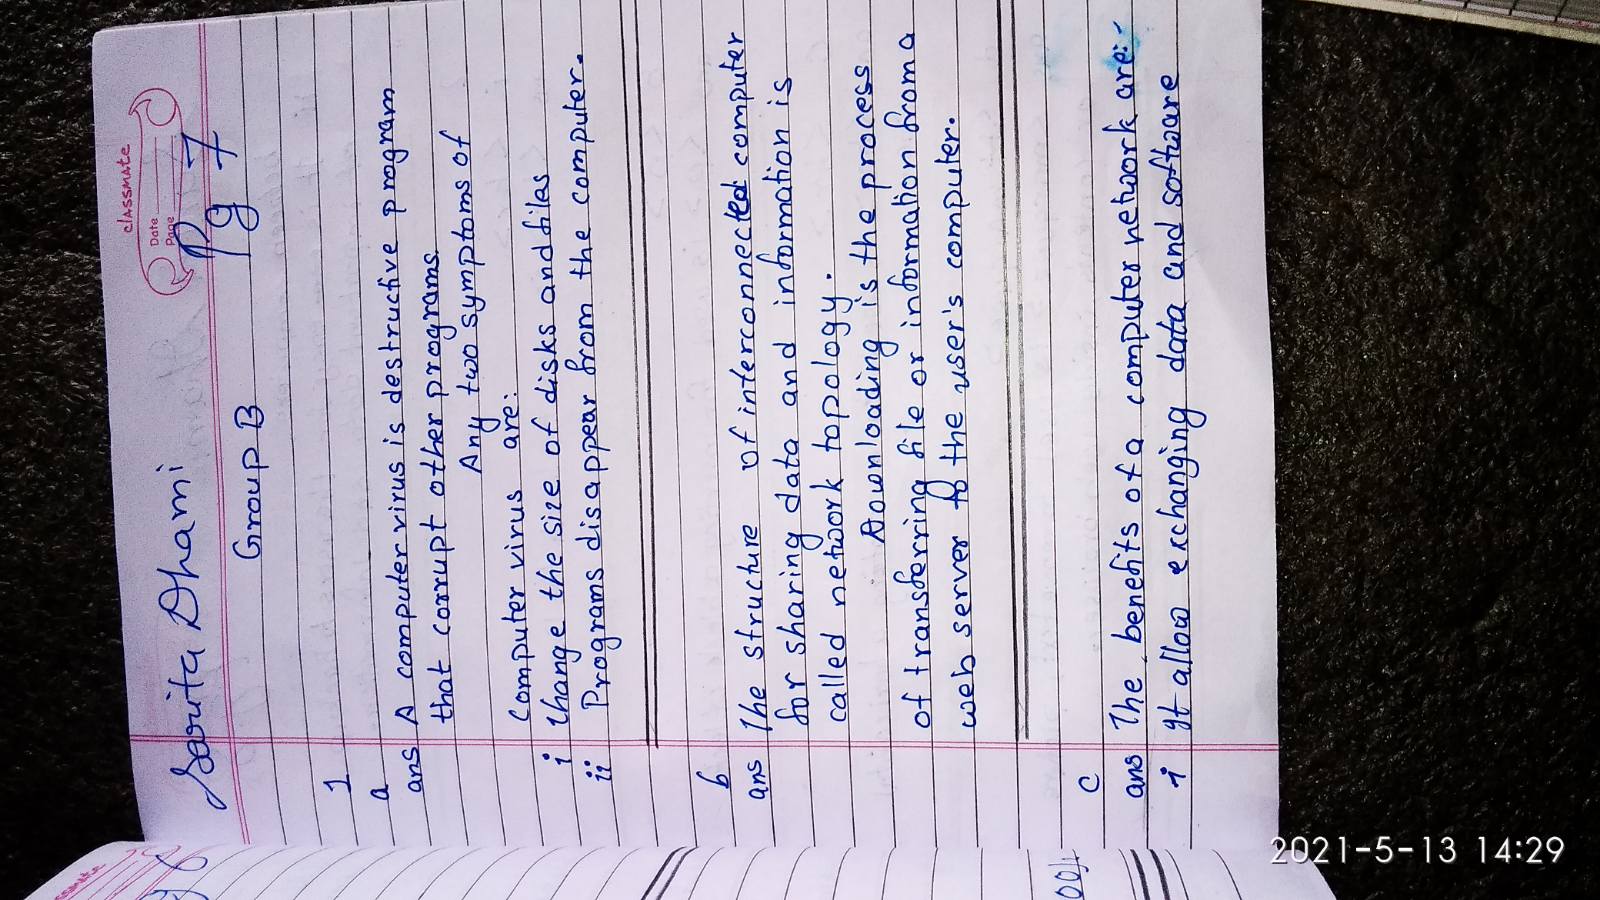 classmate
Date
Page
Pg 7
Sarita Dhami
Group B
1
a
ans A computer virus is destructive program
that corrupt other programs.
Any two symptoms of
computer virus are:
i change the size of disks and files
ii Programs disappear from the computer.
b
ans The structure of interconnected computer
for sharing data and information is
called network topology.
Downloading is the process
of transferring file or information from a
web server to the user's computer.
c
ans The benefits of a computer network are:-
i It allow exchanging data and software
2021-5-13 14:29